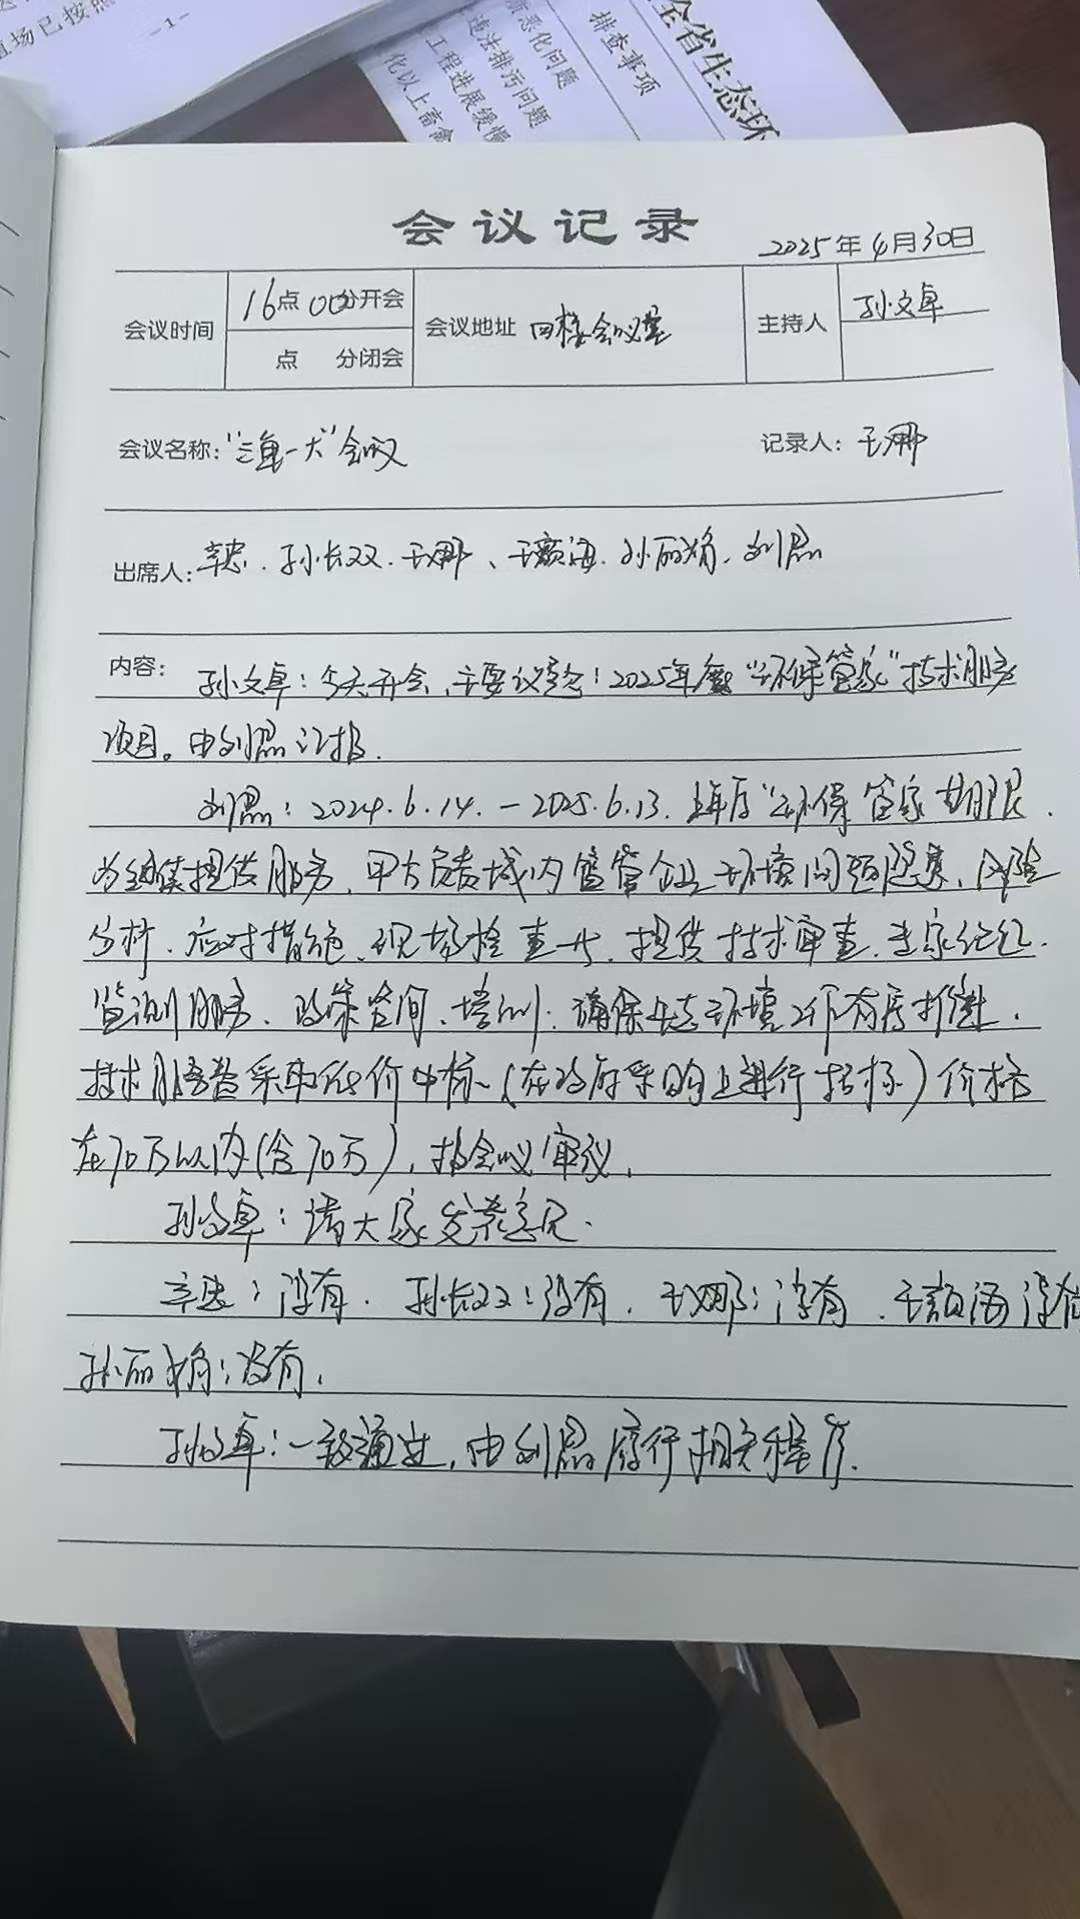 值场已按照
-1-
全省生态环
排查事项
新恶化问题
违法排污问题
工程进展缓慢
化以上畜禽
会议记录
2025年4月30日
会议时间 16点00分开会 会议地址 四楼会议室 主持人 孙文卓
点 分闭会
会议名称:“三重一大”会议 记录人:王娜
出席人: 辛忠、孙长双、王娜、王颖海、孙丽娟、刘磊
内容: 孙文卓:今天开会,主要议题:2025年度“环保管家”技术服务
项目。由刘磊汇报.
刘磊:2024.6.14.-2025.6.13.上年度“环保管家期限.
为继续提供服务,甲方负责域内监管企业环境问题隐患、风险
分析、应对措施、现场检查、提供技术审查、专家
监测服务、政策咨询、培训,确保生态环境工作有序推进.
技术服务采取低价中标(在政府采购上进行招标)价格
在70万以内(含70万),报会议审议.
孙文卓:请大家发表意见.
辛忠:没有. 孙长双:没有. 王娜:没有. 王颖海 没有
孙丽娟:没有.
孙文卓:一致通过,由刘磊履行相关程序.